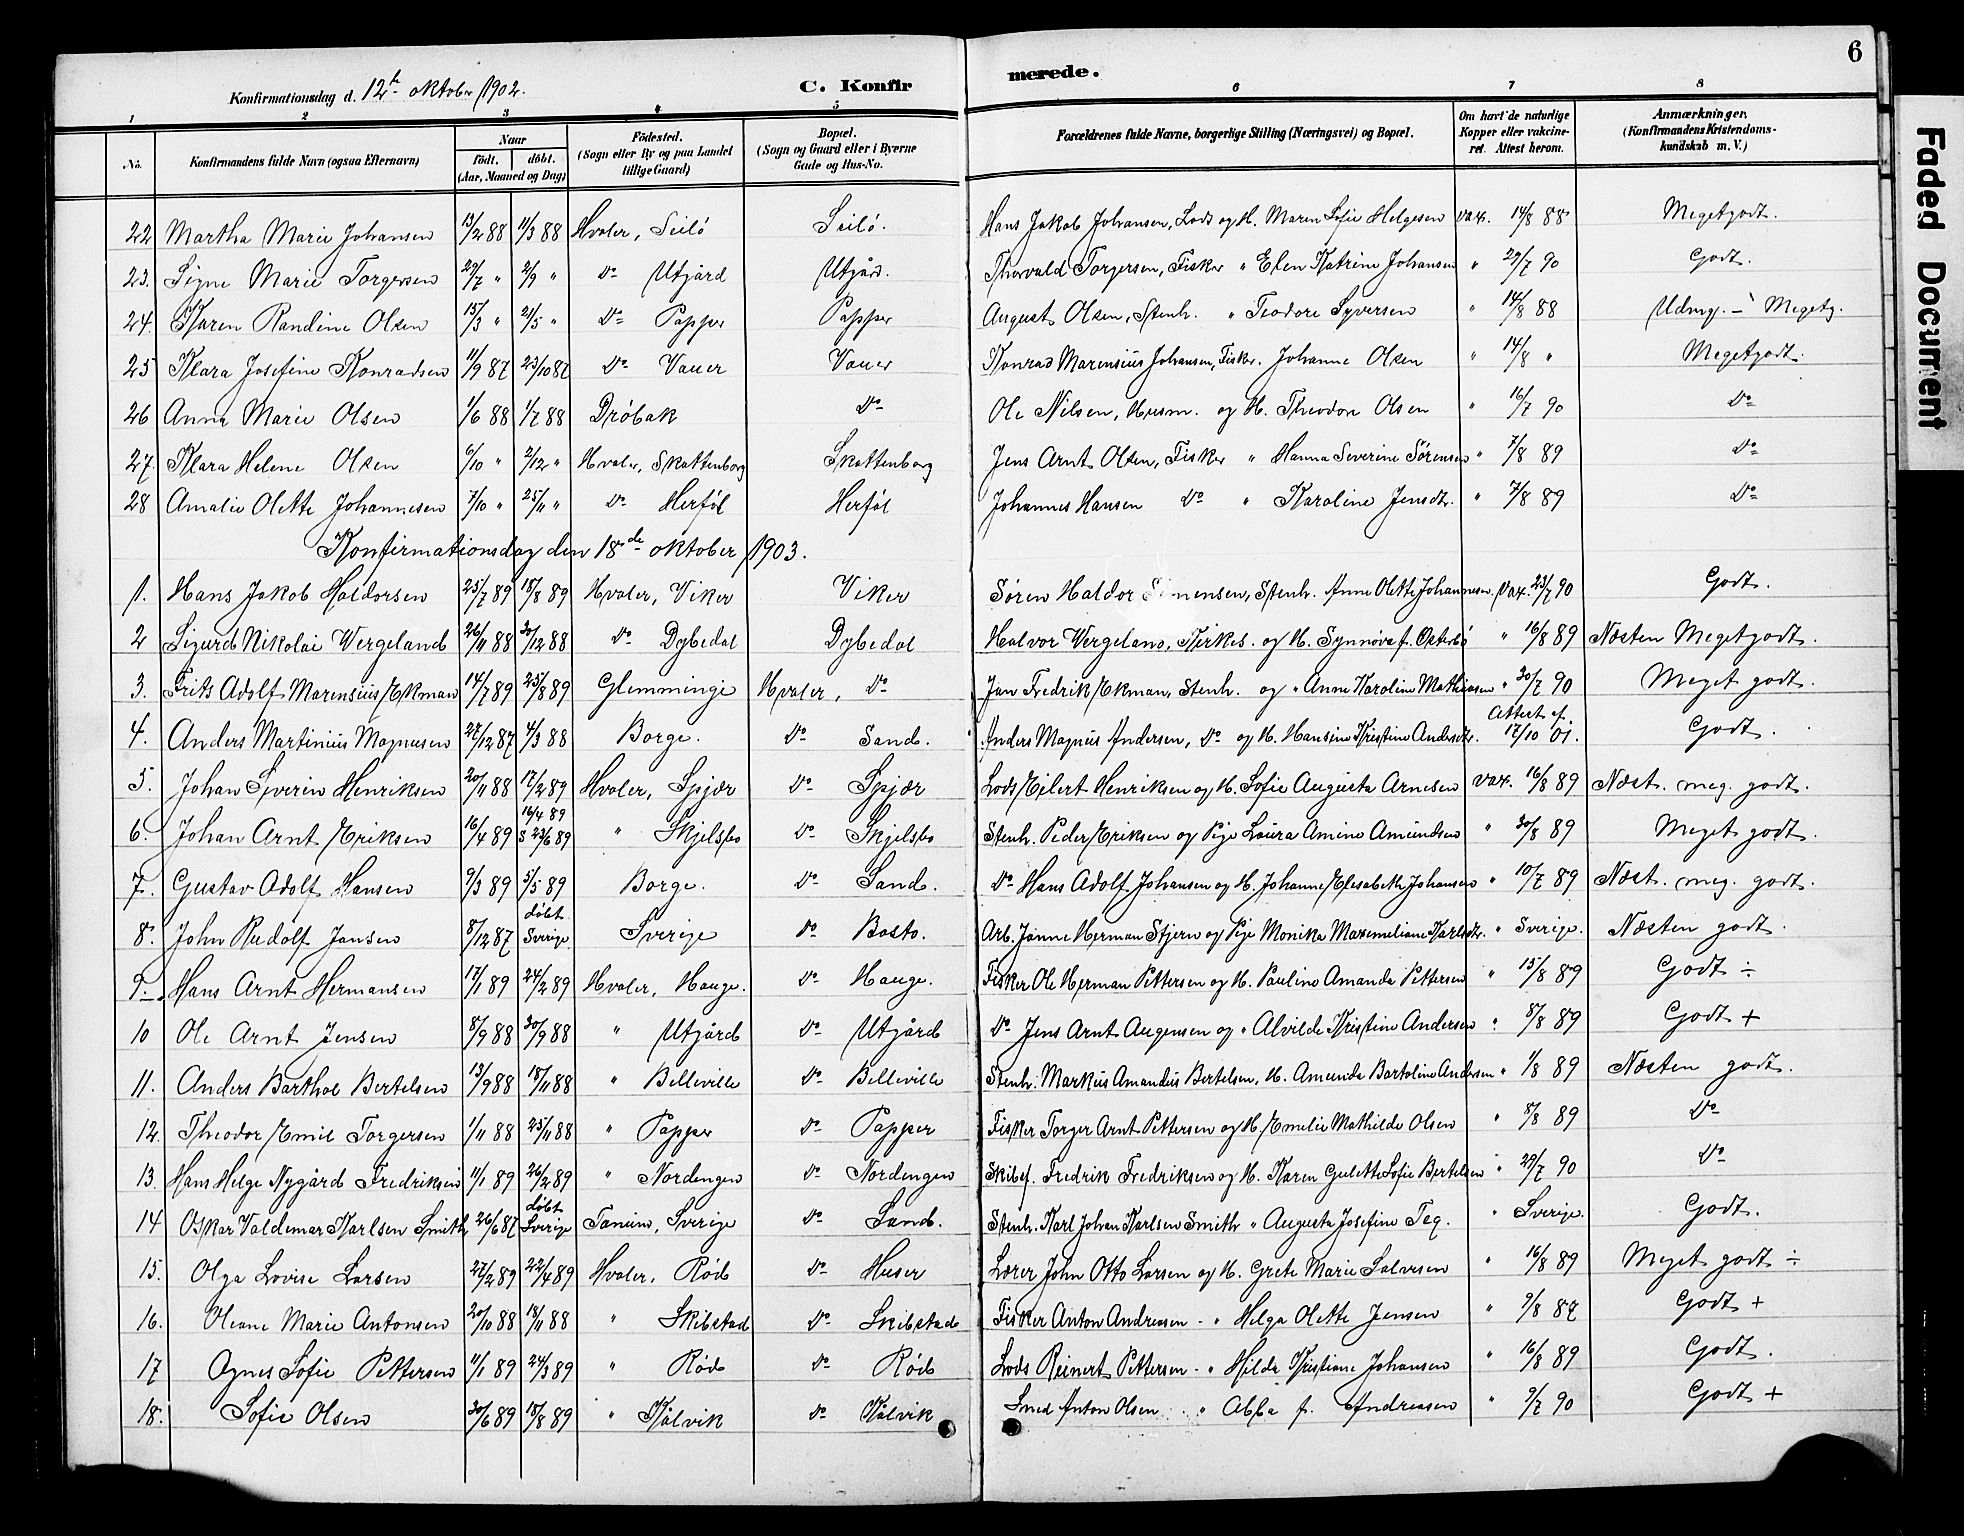 6
Konfirmationsdag d. 12te oktober 1902.
C. Konfirmerede.
1 2 3 4 5 6 7 8
No.
Konfirmandens fulde Navn (ogsaa Efternavn)
Naar
födt. döbt.
(Aar, Maaned og Dag)
Födested.
(Sogn eller By og paa Landet
tillige Gaard)
Bopæl.
(Sogn og Gaard eller i Byerne
Gade og Hus-No.
Forældrenes fulde Navne, borgerlige Stilling (Næringsvei) og Bopæl.
Om havt de naturlige
Kopper eller vakcine-
ret. Attest herom.
Anmærkninger,
(Konfirmandens Kristendoms-
kundskab m. V.)
22 Martha Marie Johansen 13/2 88 11/3 88 Hvaler, Seilö Seilö. Hans Jakob Johansen, Lods og H. Maren Sofie Helgesen vax. 14/8 88 Megetgodt.
23. Signe Marie Torgersen 29/7 " 2/9 " Do Utgård Utgård. Thorvald Torgersen, Fisker " Elen Katrine Johansen " 29/7 90 Godt.
24. Karen Randine Olsen 15/3 " 21/5 " Do Papper Papper August Olsen, Stenh. " Teodore Syversen " 14/8 88 Udmg. - Megetg.
25 Klara Josefine Konradsen 11/9 87 23/10 87 Do Vauer Vauer Konrad Marensius Johansen, Fisker. Johanne Olsen " 14/8 " Megetgodt.
26 Anna Marie Olsen 1/6 88 1/7 88 Dröbak Do Ole Nilsen, Husm. og H. Theodore Olsen " 16/7 90 Do
27. Klara Helene Olsen 6/10 " 2/12 " Hvaler, Skattenborg Skattenborg Jens Arnt Olsen, Fisker " Hanna Severine Sörensen " 7/8 89 Do
28 Amalie Olette Johannesen 7/10 " 25/11 " Do Herföl Herföl Johannes Hansen Do " Karoline Jensdt. " 7/8 89 Do
Konfirmationsdag den 18de oktober 1903.
1. Hans Jakob Haldorsen 25/7 89 18/8 89 Hvaler, Viker Viker Sören Haldor Simensen, Stenh. Anne Olette Johannesen. Vax. 23/7 90 Godt.
2 Sigurd Nikolai Vergeland 26/11 88 30/12 88 Do Dybedal Dybedal Halvor Vergeland, Kirkes. og H. Synnöva f. Österbö " 16/8 89 Næsten Megetgodt.
3. Frits Adolf Marensius Ekman 14/7 89 25/8 89 Glemminge Hvaler, Do Jan Fredrik Ekman, Stenh. og " Anne Karoline Mathiasen " 30/7 90 Meget godt.
4. Anders Martinius Magnusen 27/12 87 4/3 88 Borge. Do Sand. Anders Magnus Andersen, Do og H. Hansine Kristine Andersdtr. Attest af. 17/10 01. Godt.
5. Johan Severin Henriksen 20/11 88 17/2 89 Hvaler, Spjær Do Spjær Lods Eilert Henriksen og H. Sofie Augusta Arnesen vax. 16/8 89 Næst. meg. godt.
6. Johan Arnt Eriksen 16/4 89 16/4 89 S 23/6 89 " Skjelsbo Do Skjelsbo Stenh. Peder Eriksen og Pige Laura Amine Amundsen " 30/8 89 Meget godt.
7. Gustav Adolf Hansen 9/3 89 5/5 89 Borge. Do Sand. Do Hans Adolf Johansen og H. Johanne Elisabeth Johansen " 10/7 89 Næst. meg. godt.
8. John Rudolf Jansen 8/12 87 döbt Sverige Sverige Do Basto. Arb. Janne Herman Stjern og Pige Monika Maximiliane Karlsdtr. " Sverige. Næsten godt.
9. Hans Arnt Hermansen 17/1 89 24/2 89 Hvaler, Hauge. Do Hauge. Fisker Ole Herman Pettersen og H. Pauline Amanda Pettersen " 15/8 89 Godt ÷
10 Ole Arnt Jensen 8/9 88 30/9 88 " Utgård Do Utgård Do Jens Arnt Augensen og " Alvilde Kristine Andersen " 8/8 89 Godt +
11. Anders Barthol Bertelsen 13/9 88 18/11 88 " Belleville Do Belleville Stenh. Markus Amandus Bertelsen, H. Amunda Bartoline Andersen " 1/8 89 Næsten godt.
12. Theodor Emil Torgersen 1/11 88 25/11 88 " Papper Do Papper Fisker Torger Arnt Pettersen og H. Emelie Mathilde Olsen " 8/8 89 Do
13. Hans Helge Nygård Fredriksen 11/1 89 26/2 89 " Nordengen Do Nordengen Skibsf. Fredrik Fredriksen og H. Karen Gulette Sofie Bertelsen " 29/7 90 Do
14 Oskar Valdemar Karlsen Smith 26/6 87 döbt Sverige Tanum, Sverige Do Sand. Stenh. Karl Johan Karlsen Smith " Augusta Josefine Teg. " Sverige. Godt.
15. Olga Lovise Larsen 27/2 89 22/4 89 Hvaler, Röd Do Huser Lærer John Otto Larsen og H. Grete Marie Salvesen " 16/8 89 Meget godt ÷
16. Oleane Marie Antonsen 20/10 88 18/11 88 " Skibstad Do Skibstad Fisker Anton Andreasen - " Helga Olette Jensen " 9/8 87 Godt +
17 Agnes Sofie Pettersen 11/1 89 24/3 89 " Röd Do Röd Lods Reinert Pettersen - " Hilda Kristiane Johansen " 16/8 89 Godt.
18. Sofie Olsen 30/6 89 18/8 89 " Kölvik Do Kölvik Smed Anton Olsen - " Abba f. Andreasen " 9/7 90 Godt +
Faded Document